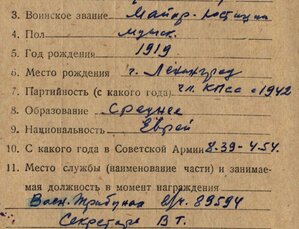 3. Воинское звание Майор юстиции
4. Пол мужск.
5. Год рождения 1919
6. Место рождения г. Ленинград
7. Партийность (с какого года) чл. КПСС с 1942
8. Образование Среднее
9. Национальность Еврей
10. С какого года в Советской Армии 8.39-4.54.
11. Место службы (наименование части) и занимае-
мая должность в момент награждения
Воен. Трибунал в/ч. 89594
Секретарь ВТ.